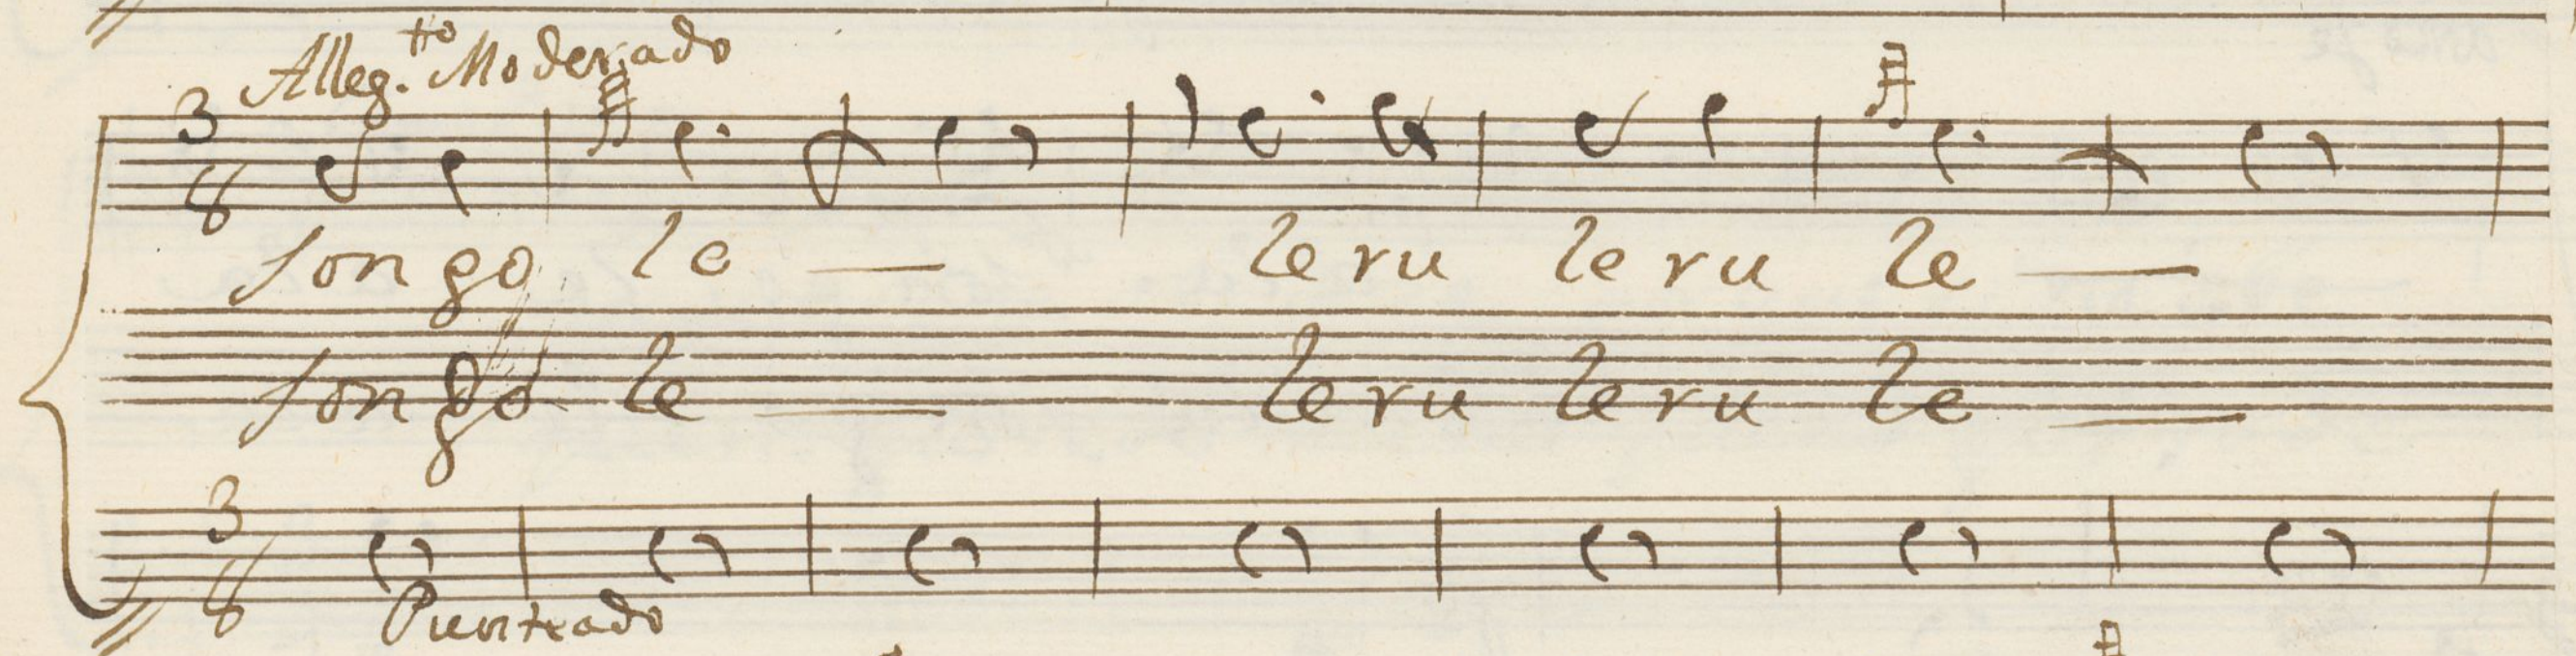 Alleg.tto Moderado
3
8
son go le — le ru le ru le —
son go le — le ru le ru le —
3
8
Punteado